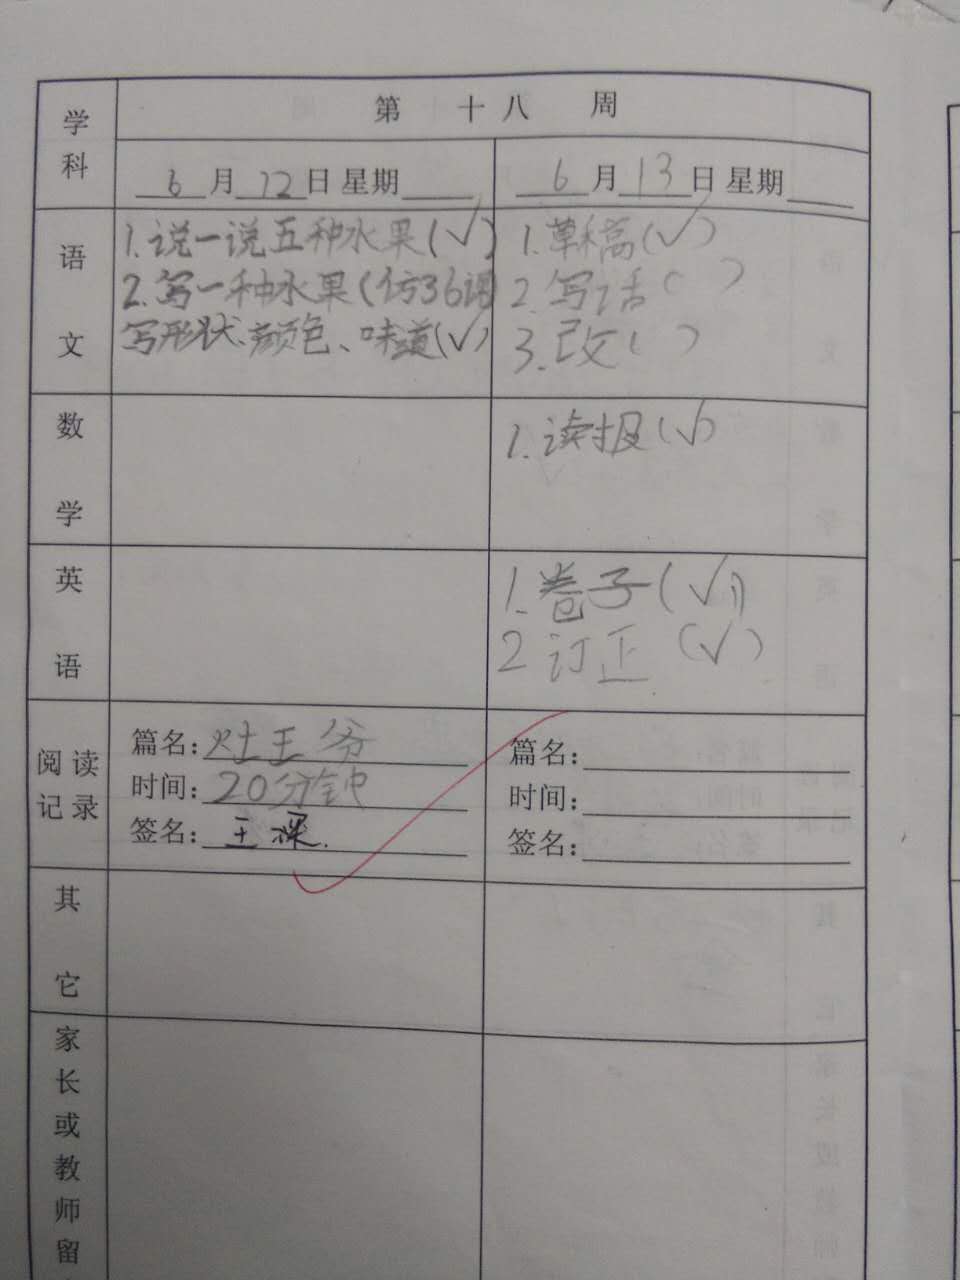 学科
第 十八 周
6月12日 星期
6月13日 星期
语文
1.说一说五种水果(√)
2.写一种水果(仿36课
写形状、颜色、味道(√)
1.草稿(√)
2.写话( )
3.改( )
数学
1.读报(√)
英语
1.卷子(√)
2 订正 (√)
阅读记录
篇名:灶王爷
时间:20分钟
签名:王深
篇名:
时间:
签名:
其它
家长或教师留